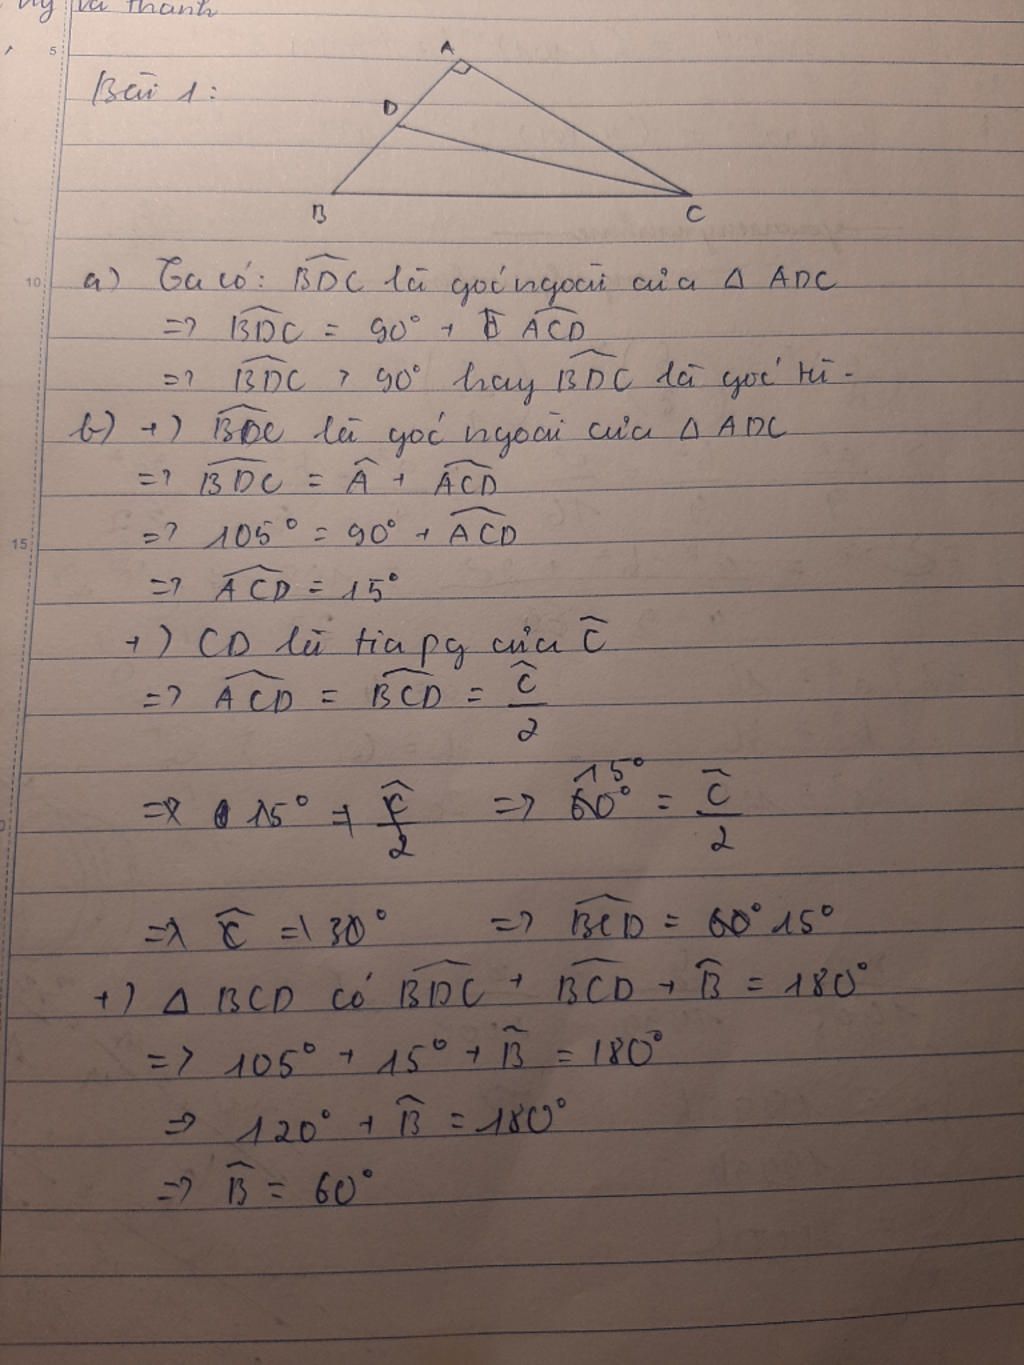 và thanh
5
A
Bài 1:
D
B
C
10
a) Ta có: BDC là góc ngoài của Δ ADC
=> BDC = 90° + ACD
=> BDC > 90° hay BDC là góc tù.
b) +) BDC là góc ngoài của Δ ADC
=> BDC = Â + ACD
15
=> 105° = 90° + ACD
=> ACD = 15°
+) CD là tia pg của Ĉ
=> ACD = BCD = Ĉ/2
=> 15° = Ĉ/2 => 15° = Ĉ/2
=> Ĉ = 30° => BCD = 15°
+) Δ BCD có BDC + BCD + B̂ = 180°
=> 105° + 15° + B̂ = 180°
=> 120° + B̂ = 180°
=> B̂ = 60°